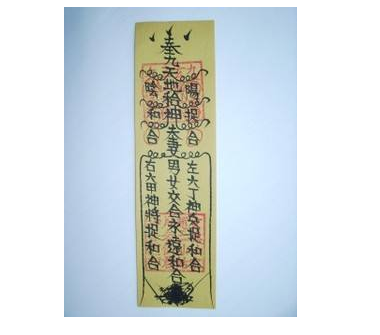 陽捉合
左六丁神兵捉和合
奉九天地神夫妻男女交合永遠和合
陰和合
右六甲神將捉和合